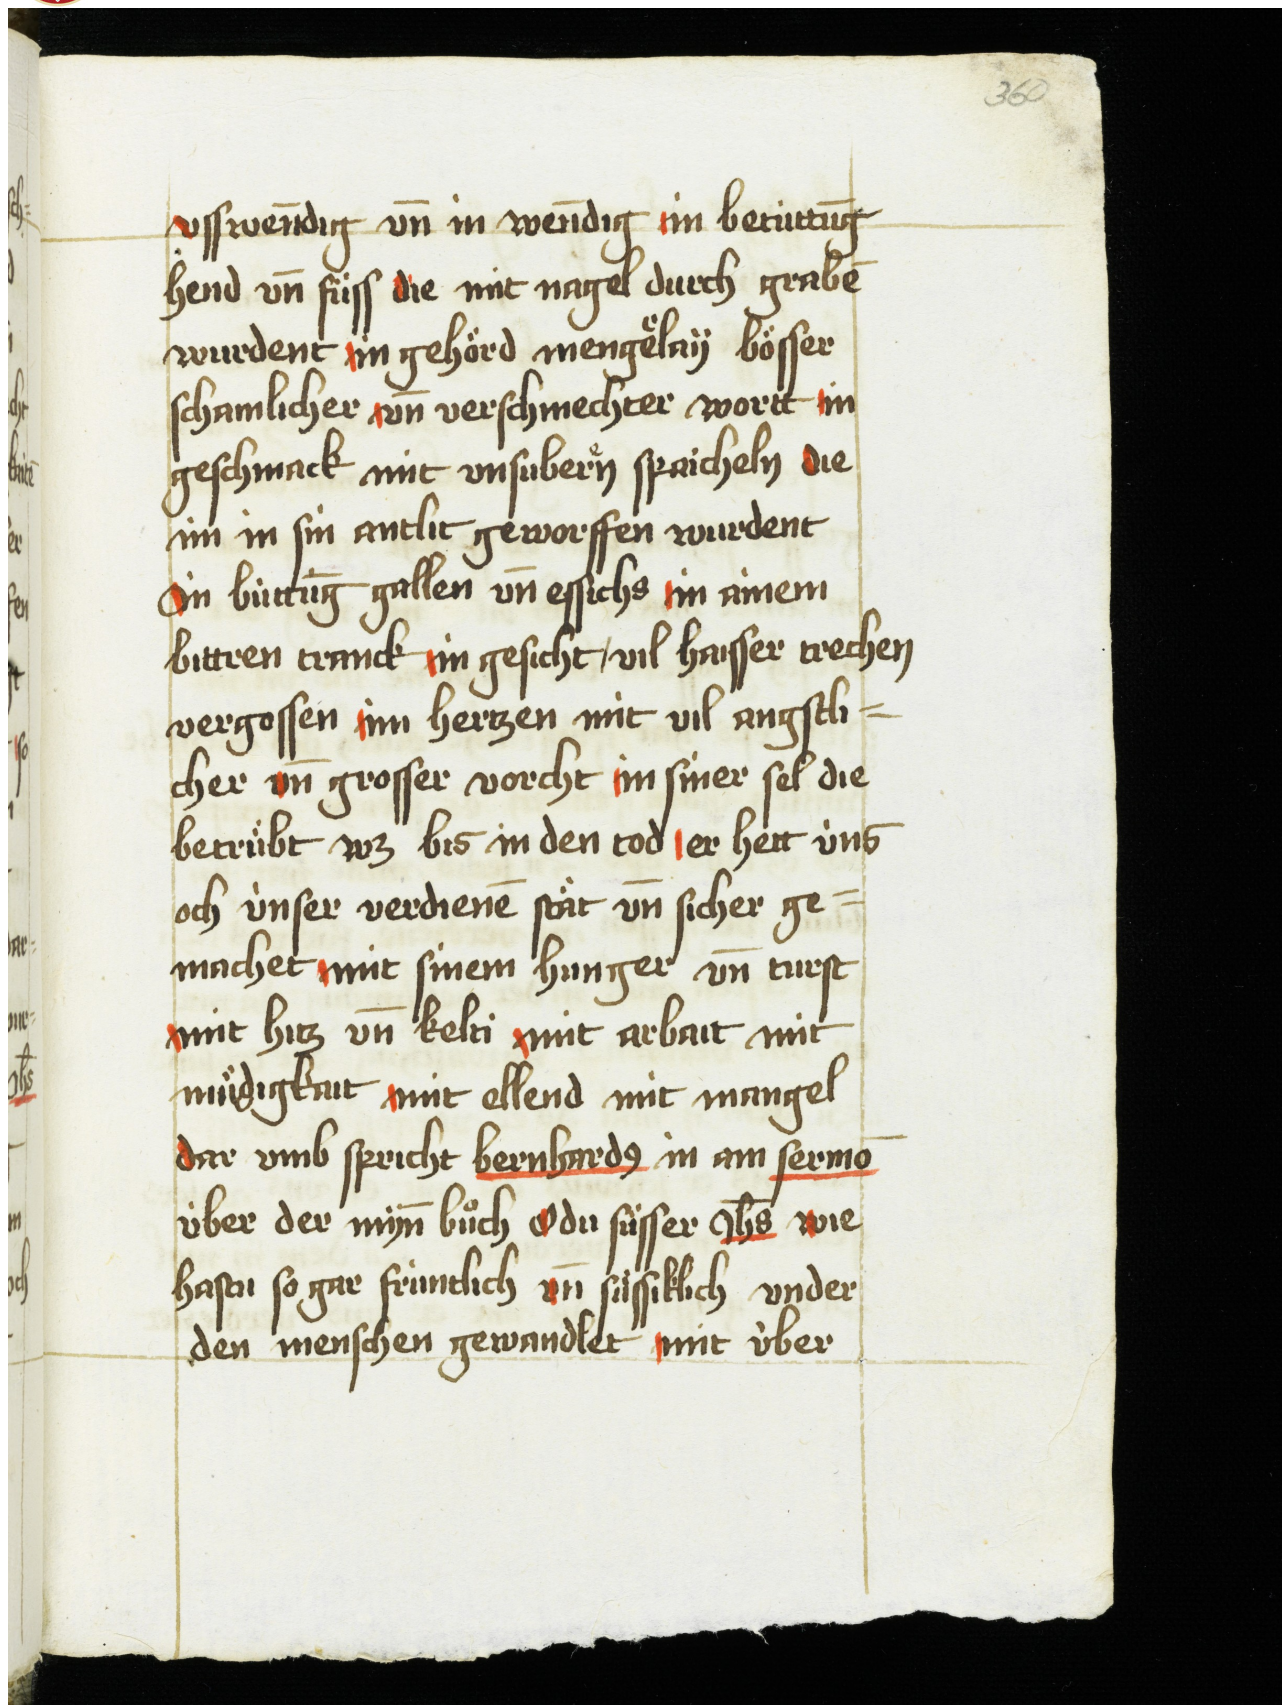 360
vsswēndig vn̄ in wēndig in betüttūg
hend vn̄ füss die mit nagel durch grabē
wurdent in gehörd mengëlaÿ bösser
schamlicher vn̄ verschmechter wortt in
geschmack mit vnsuberṅ spaicheln die
im in sin antlit geworffen wurdent
In büttūg gallen vn̄ essichs in ainem
bittren tranck in gesicht / vil haisser trechen
vergossen im hertzen mit vil angstli=
cher vn̄ grosser vorcht in siner sel die
betrübt wz bis in den tod er hett üns
och ünser verdienē stät vn̄ sicher ge=
machet mit sinem hunger vn̄ turst
mit hitz vn̄ kelti mit arbait mit
müdigkait mit ellend mit mangel
dar vmb spricht bernhardꝰ in am sermo̅
über der mÿn̄ bůch O du süsser Jhs̄ wie
hastu so gar früntlich vn̄ süssiklich vnder
den menschen gewandlet mit über